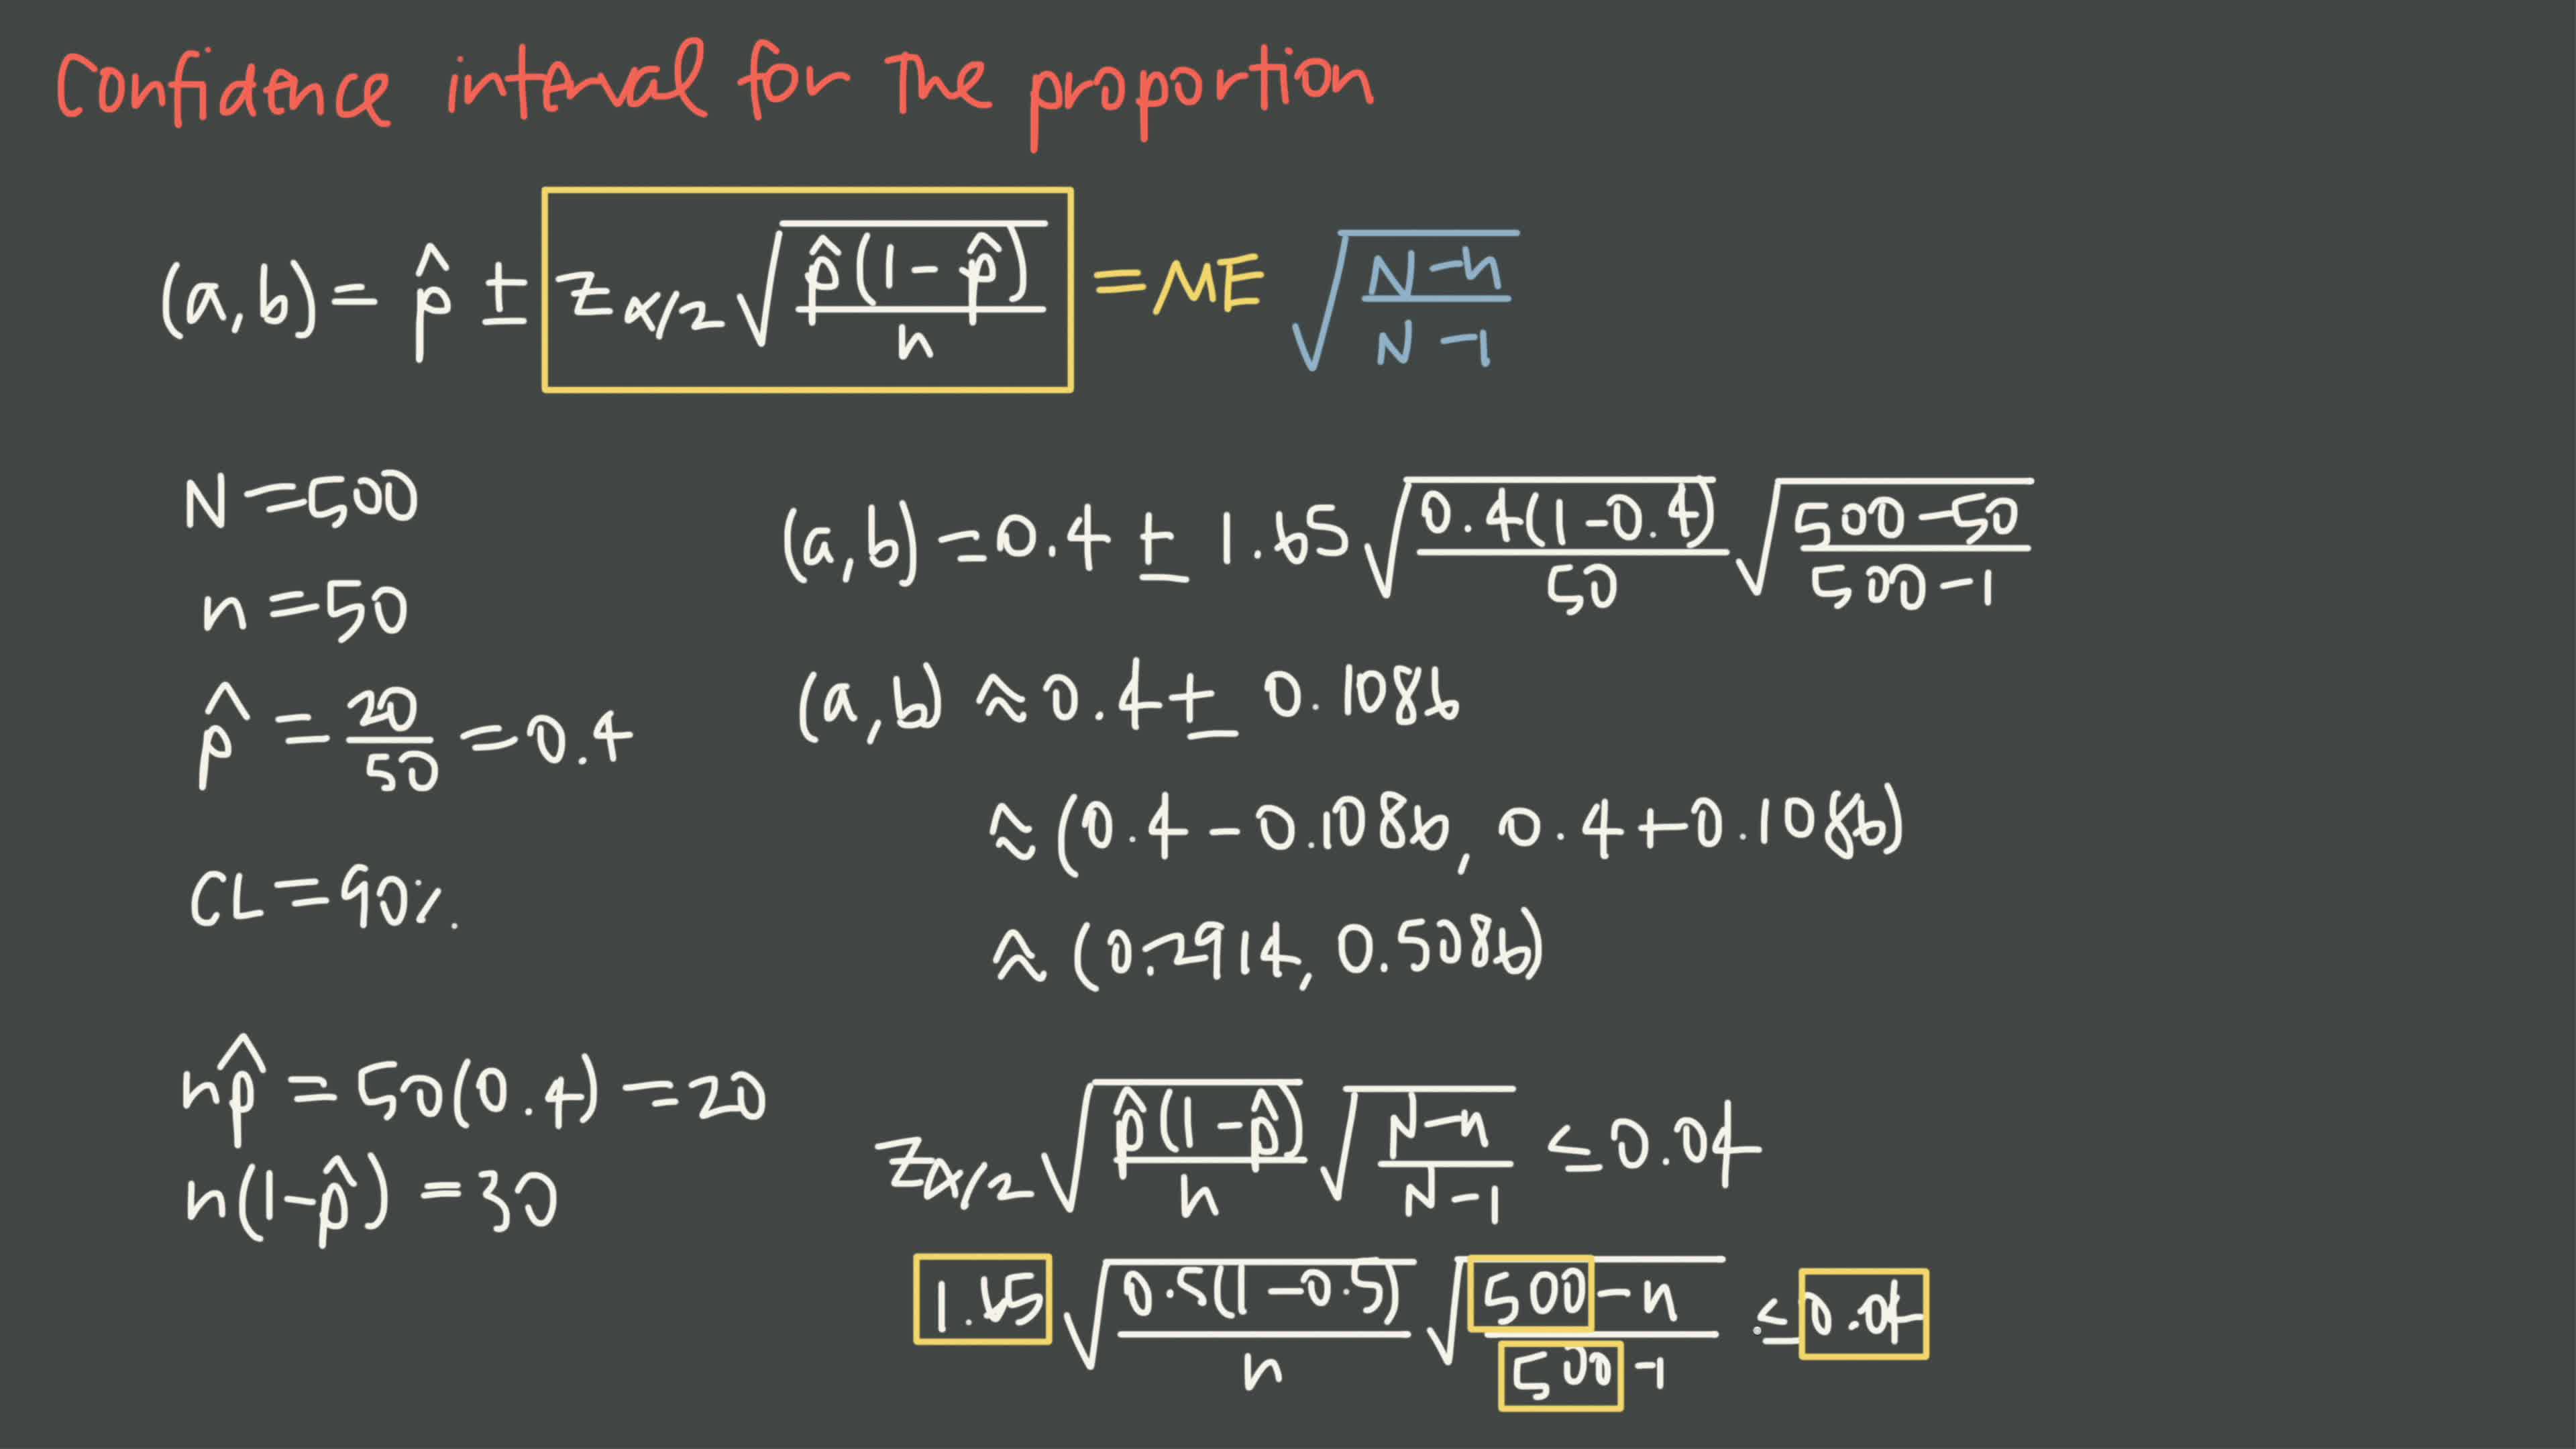 Confidence interval for the proportion
(a,b) = p̂ ± z α/2 √(p̂(1-p̂)/n) = ME √((N-n)/(N-1))
N=500
n=50
p̂ = 20/50 = 0.4
CL=90%.
np̂ = 50(0.4) = 20
n(1-p̂) = 30
(a,b) = 0.4 ± 1.65 √(0.4(1-0.4)/50) √((500-50)/(500-1))
(a,b) ≈ 0.4 ± 0.1086
≈ (0.4-0.1086, 0.4+0.1086)
≈ (0.2914, 0.5086)
z α/2 √(p̂(1-p̂)/n) √((N-n)/(N-1)) ≤ 0.04
1.65 √(0.5(1-0.5)/n) √((500-n)/(500-1)) ≤ 0.04